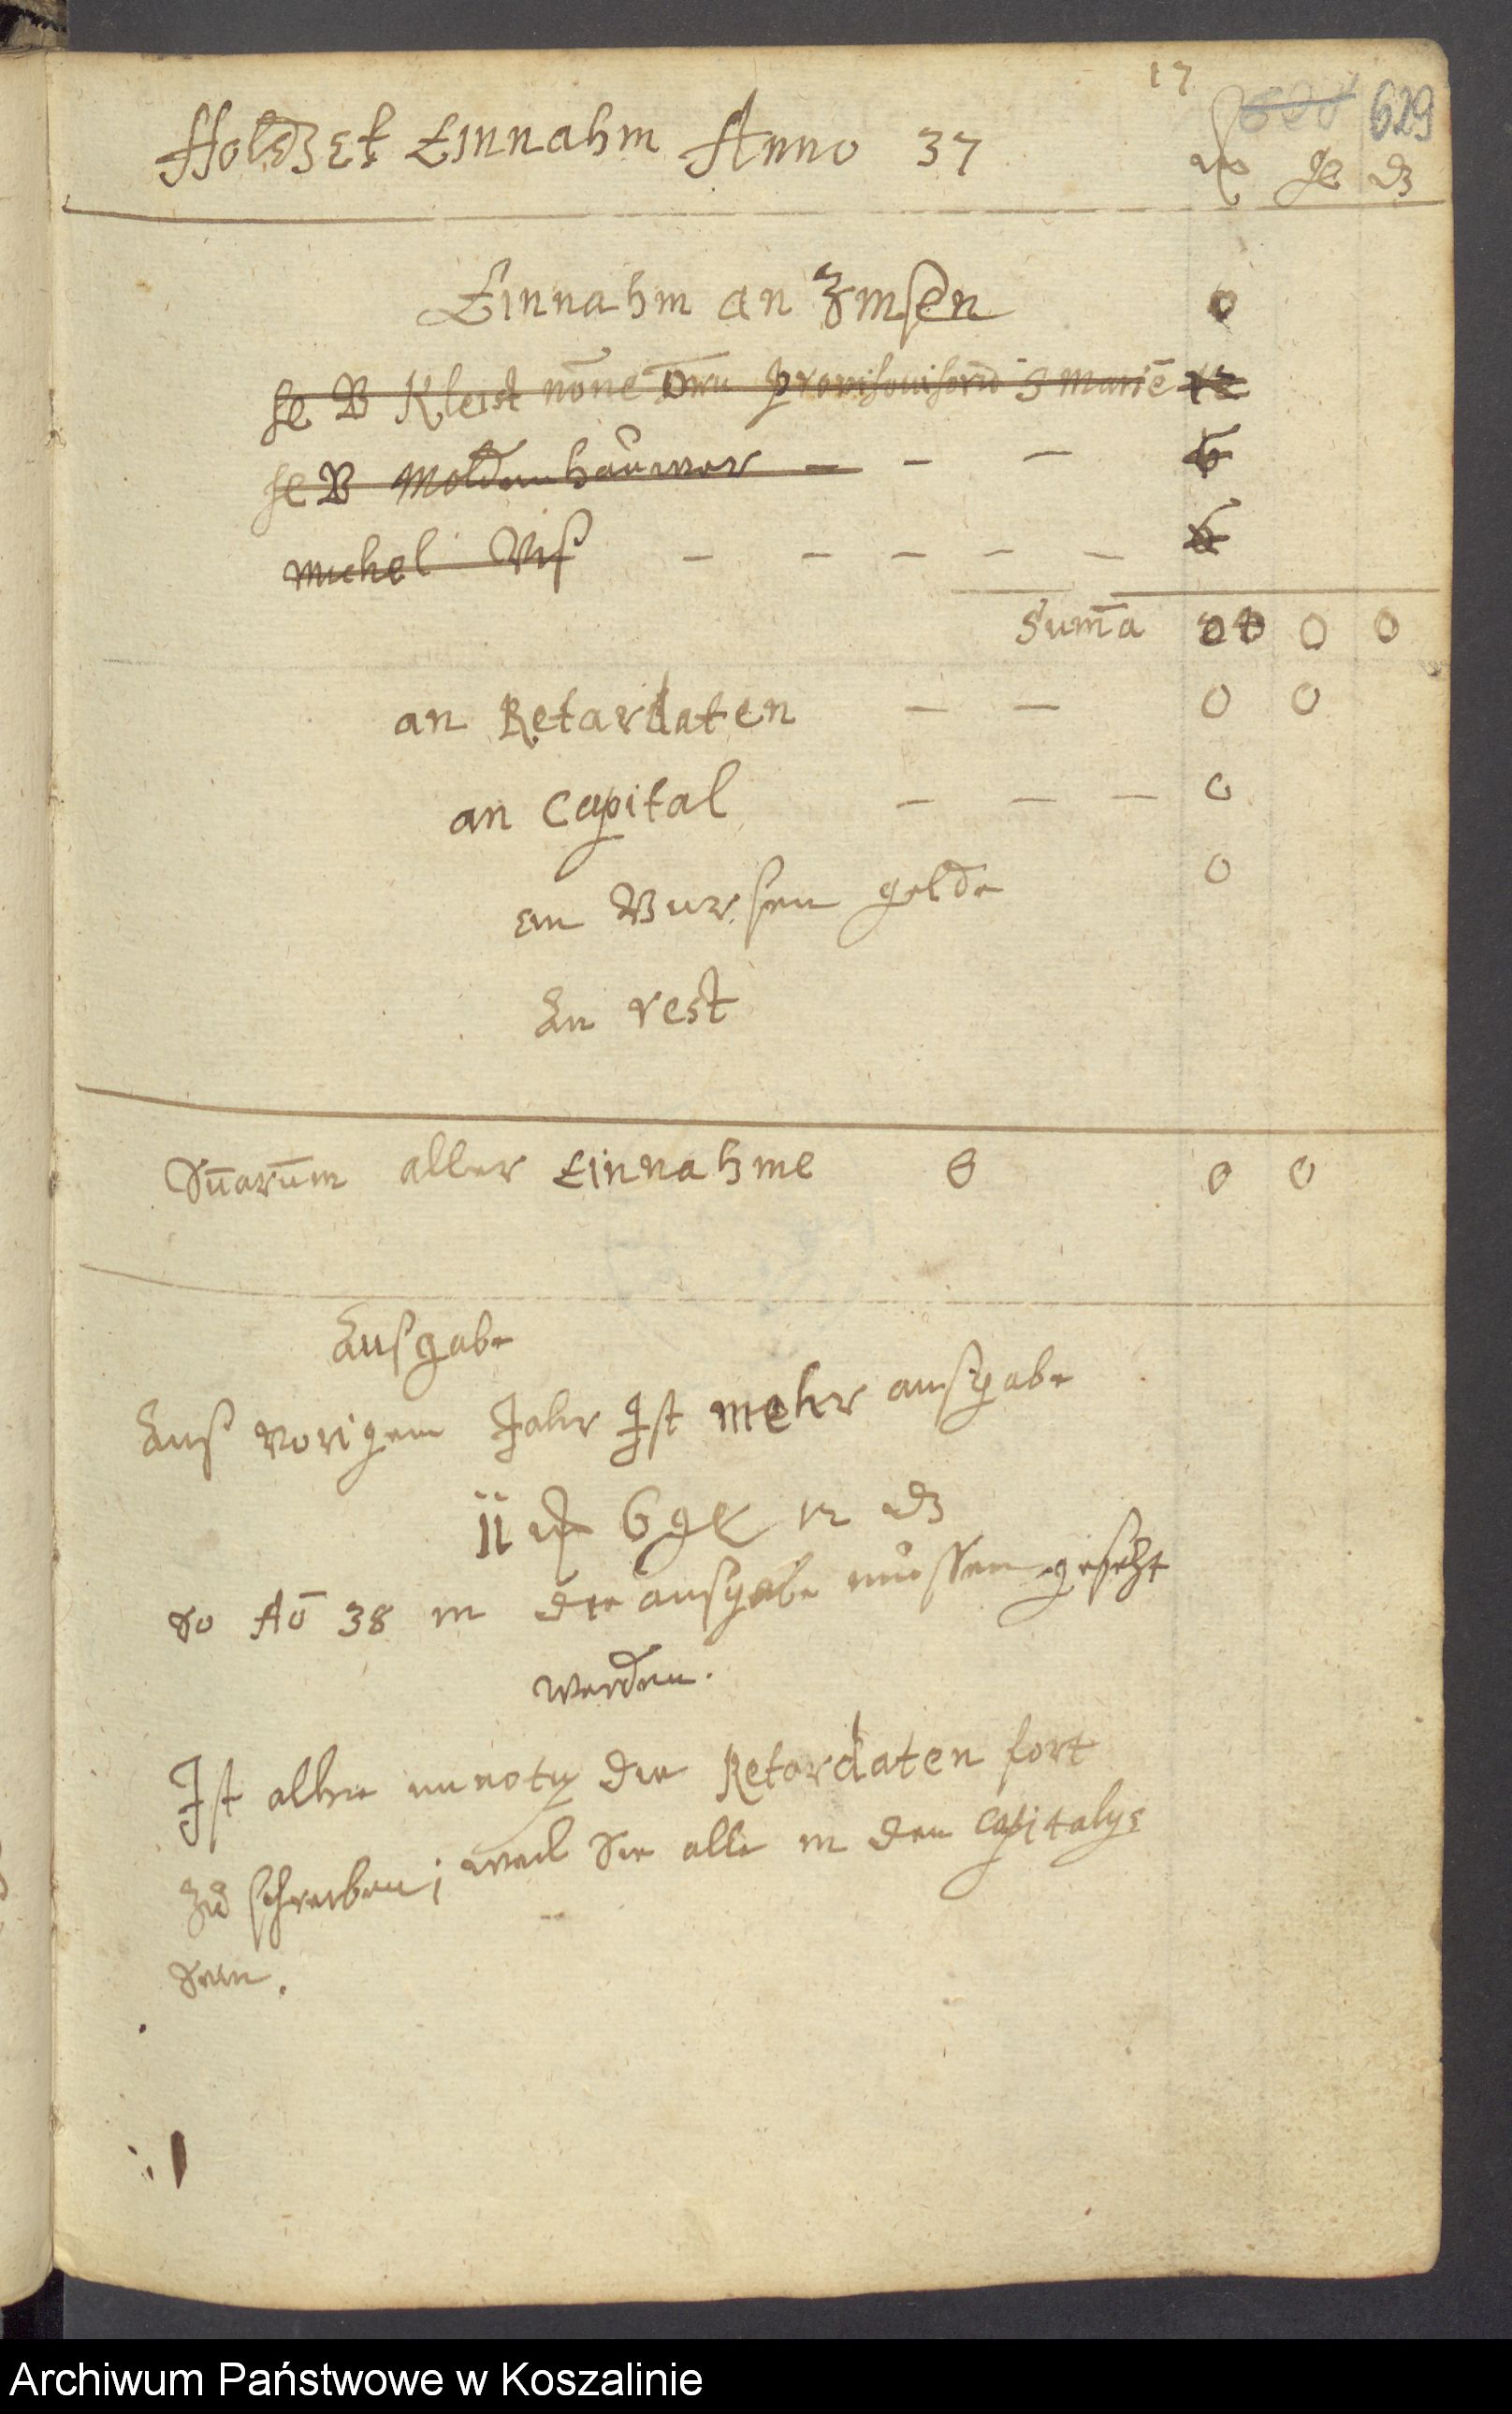 17
629
ffolget Einnahm Anno 37
Einnahm an Zinsen 0
H B Kleist noīe Dnn provisorum S Marie 12
H B Moldenhauwer — — — 6
Michel Viß — — — — — 6
Sum̄a 0 0 0
an Retardaten — — 0 0
an Capital — — — 0
an Bursen gelde 0
An rest
Sūarūm aller Einnahme 0 0 0
Außgabe
Auß vorigem Jahr Ist mehr außgabe
11 6 gl 12 d
So Aō 38 in die außgabe müssen gesetzt
werden.
Ist alhie unnotig die Retardaten fort
zu schreiben; weil Sie alle in den Capitalys
Sein.
Archiwum Państwowe w Koszalinie